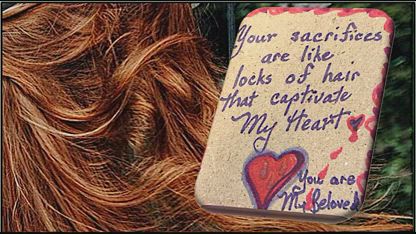 Your sacrifices
are like
locks of hair
that captivate
My Heart
You are
My Beloved